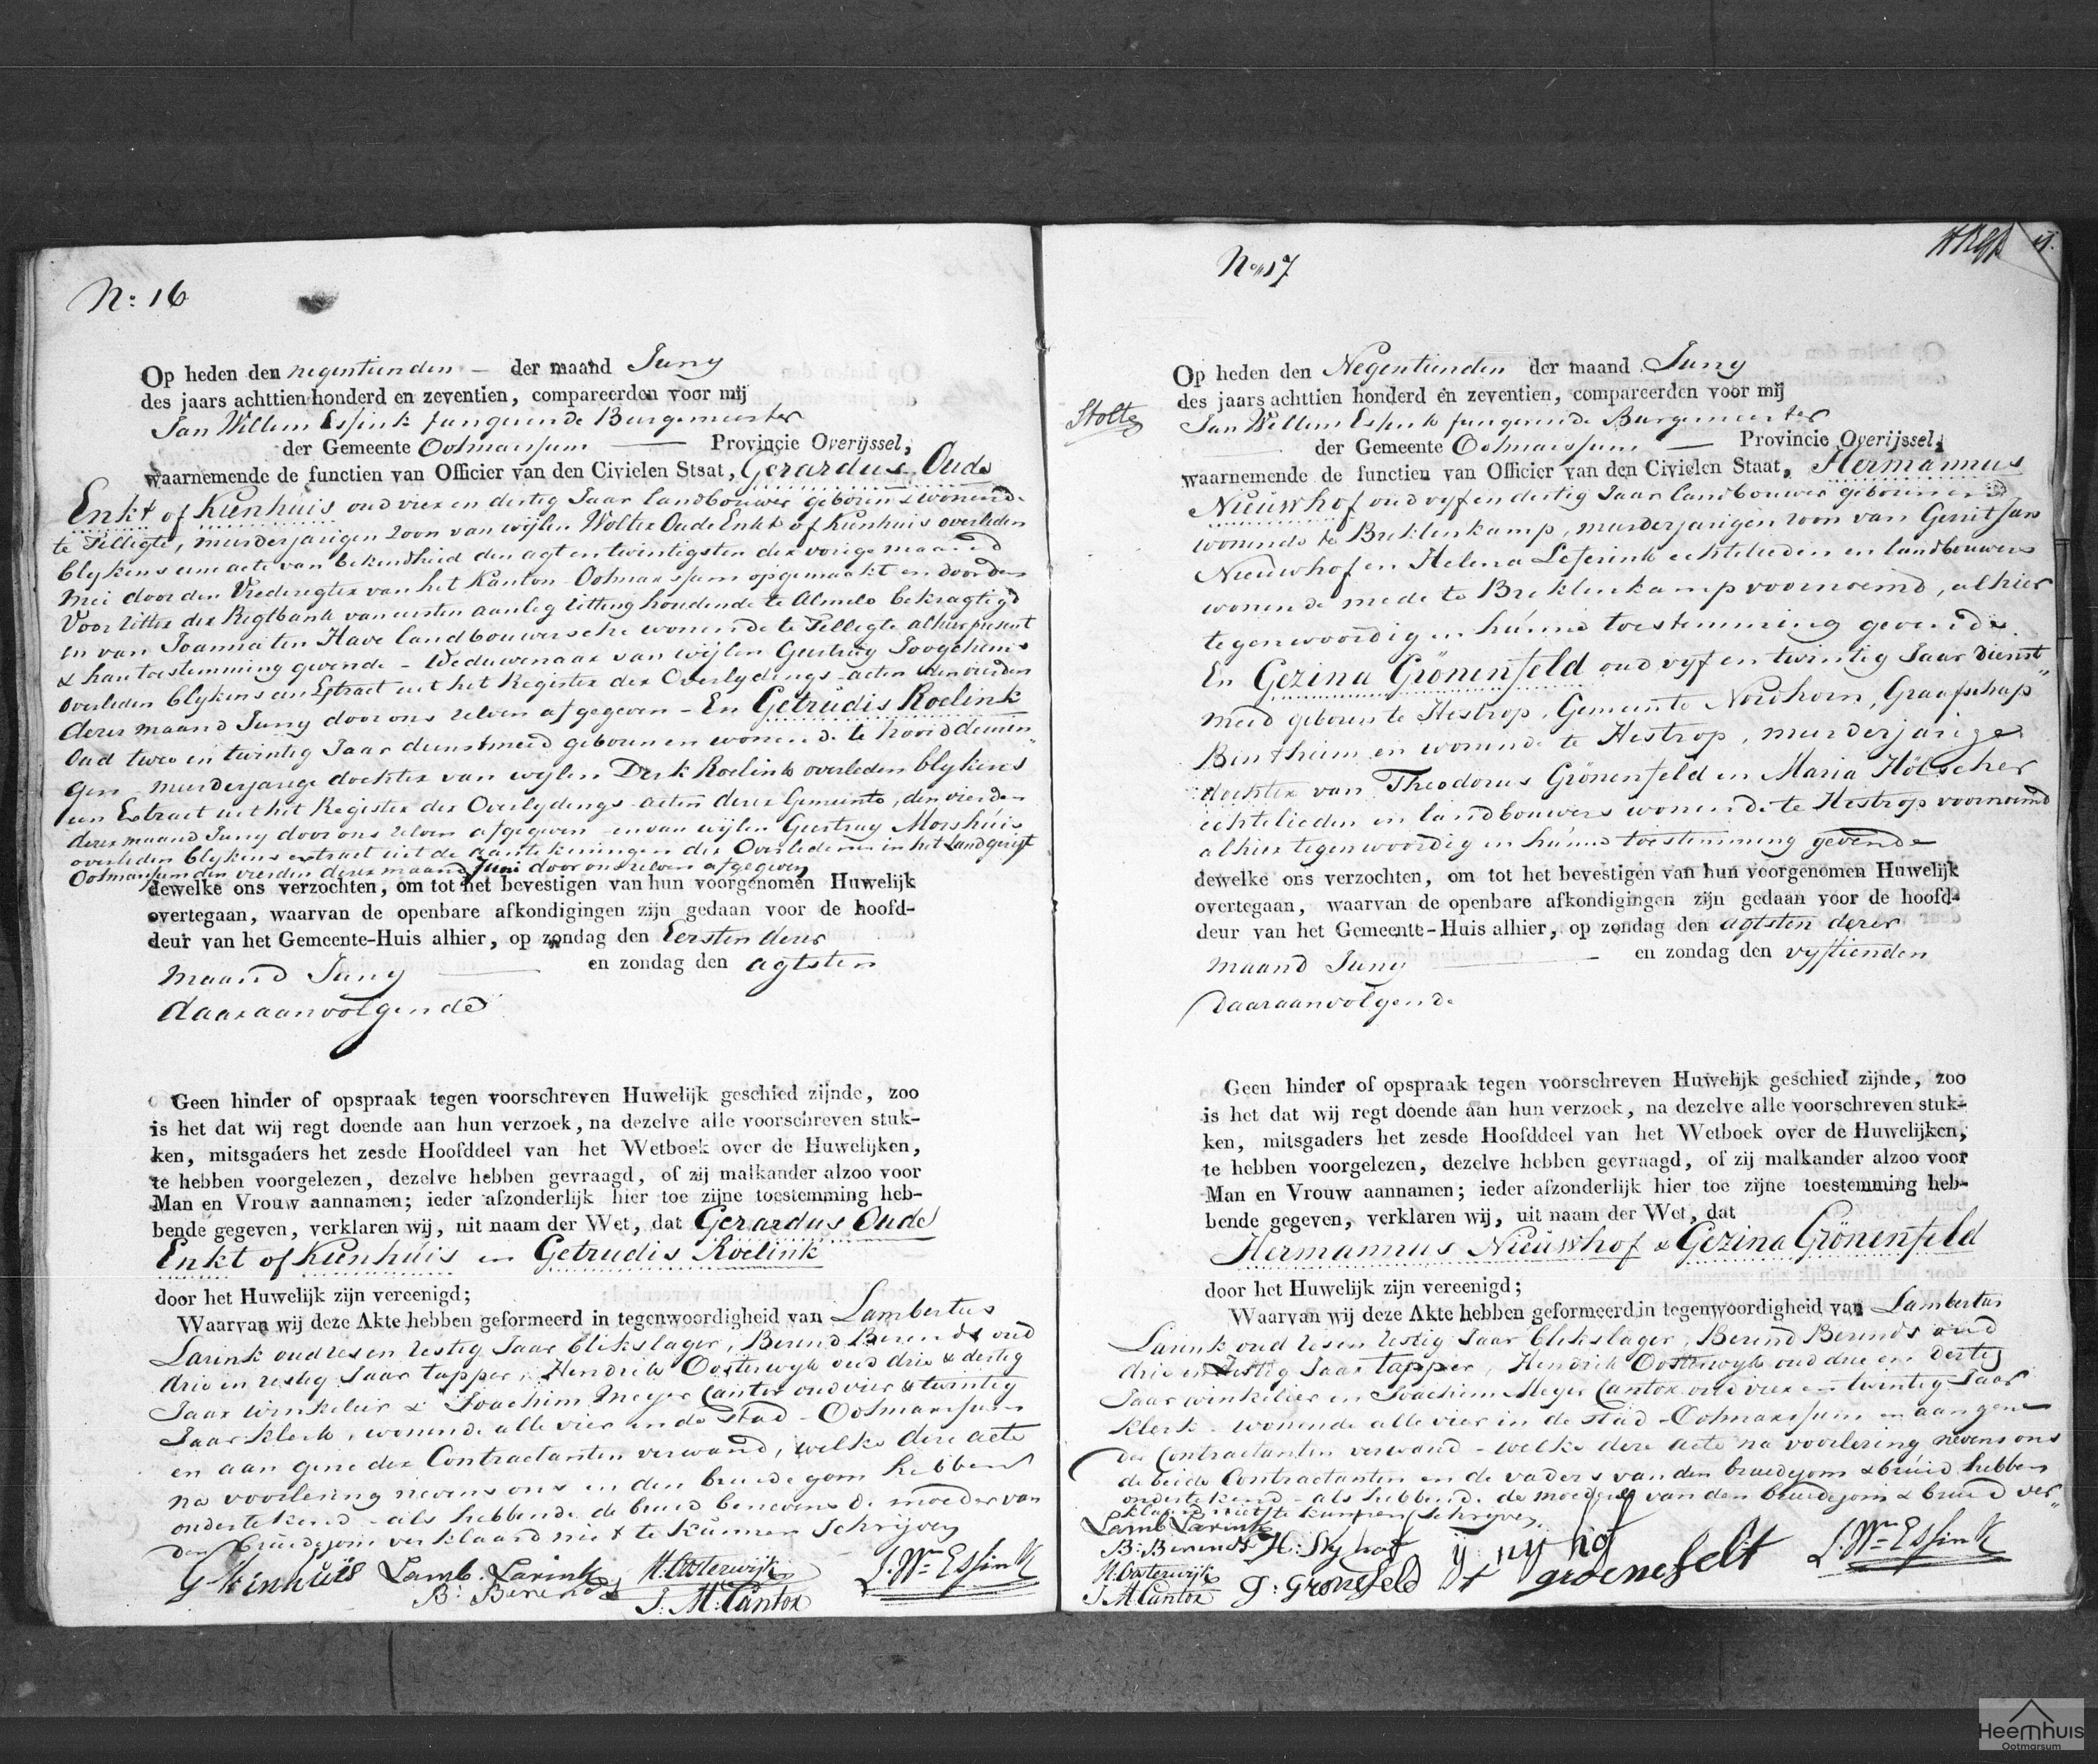 No: 16
Op heden den negentienden — der maand Juny
des jaars achttien honderd en zeventien, compareerden voor mij
Jan Willem Essink fungerende Burgemeester
der Gemeente Ootmarssum — Provincie Overijssel,
waarnemende de functien van Officier van den Civielen Staat, Gerardus Oude
Enkt of Kienhuis oud vier en dertig Jaar landbouwer geboren & wonende
te Tilligte, meerderjarigen zoon van wijlen Wolter Oude Enkt of Kienhuis overleden
blykens eene acte van bekendheid den agt en twintigsten der vorige maand
Mei door den Vrederegter van het Kanton Ootmarssum opgemaakt en door den
Voorzitter der Regtbank van eersten aanleg zitting houdende te Almelo bekragtigd
en van Joanna ten Have landbouwersche wonende te Tilligte alhier present
& haar toestemming gevende - Weduwenaar van wijlen Geertruy Joogehuis
overleden blykens een Extract uit het Register der Overlydings-acten den vierden
dezer maand Juny door ons zelven afgegeven - En Getrudis Roelink
Oud twee en twintig Jaar dienstmeid geboren en wonende te Noorddeurnin„
gen meerderjarige dochter van wylen Derk Roelink overleden blykens
een Extract uit het Register der Overlydings-acten dezer Gemeente, den vierden
dezer maand Juny door ons zelven afgegeven en van wijlen Geertruy Morshuis
overleden blykens extract uit de aantekeningen der Overledenen in het Landgerigt
Ootmarssum den vierden dezer maand Juni door ons zelven afgegeven
dewelke ons verzochten, om tot het bevestigen van hun voorgenomen Huwelijk
overtegaan, waarvan de openbare afkondigingen zijn gedaan voor de hoofd-
deur van het Gemeente-Huis alhier, op zondag den Eersten dezer
maand Juny — en zondag den agtsten
daaraanvolgende
Geen hinder of opspraak tegen voorschreven Huwelijk geschied zijnde, zoo
is het dat wij regt doende aan hun verzoek, na dezelve alle voorschreven stuk-
ken, mitsgaders het zesde Hoofddeel van het Wetboek over de Huwelijken,
te hebben voorgelezen, dezelve hebben gevraagd, of zij malkander alzoo voor
Man en Vrouw aannamen; ieder afzonderlijk hier toe zijne toestemming heb-
bende gegeven, verklaren wij, uit naam der Wet, dat Gerardus Oude
Enkt of Kienhuis en Getrudis Roelink
door het Huwelijk zijn vereenigd;
Waarvan wij deze Akte hebben geformeerd in tegenwoordigheid van Lambertus
Larink oud zes en zestig Jaar blikslager, Berend Berends oud
drie en zestig Jaar tapper, Hendrik Oosterwyk oud drie & dertig
Jaar winkelier & Joachim Meyer Cantor oud vier & twintig
Jaar klerk, wonende alle vier in de stad - Ootmarssum
en aan gene der Contractanten verwand, welke deze acte
na voorlezing nevens ons en den bruidegom hebben
ondertekend - als hebbende de bruid benevens de moeder van
den bruidegom verklaard niet te kunnen schrijven
G Kinhuis Lamb. Larink H. Oosterwijk J. Wm Essink
B: Berends J: M: Cantor
No. 17
Op heden den Negentienden der maand Juny
des jaars achttien honderd en zeventien, compareerden voor mij
Stolte
Jan Willem Essink fungerende Burgemeester
der Gemeente Ootmarssum — Provincie Overijssel,
waarnemende de functien van Officier van den Civielen Staat, Hermannus
Nieuwhof oud vyf en dertig Jaar landbouwer geboren en
wonende te Breklenkamp, meerderjarigen zoon van Gerrit Jan
Nieuwhof en Helena Leferink echtelieden en landbouwers
wonende mede te Breklenkamp voornoemd, alhier
tegenwoordig en hunne toestemming gevende
En Gezina Grönenfeld oud vyf en twintig Jaar Dienst„
meid geboren te Hestrop, Gemeente Nordhorn, Graafschap
Bintheim en wonende te Hestrop, meerderjarige
dochter van Theodorus Grönenfeld en Maria Hölscher
echtelieden en landbouwers wonende te Hestrop voornoemd
alhier tegenwoordig en hunne toestemming gevende
dewelke ons verzochten, om tot het bevestigen van hun voorgenomen Huwelijk
overtegaan, waarvan de openbare afkondigingen zijn gedaan voor de hoofd-
deur van het Gemeente-Huis alhier, op zondag den agtsten dezer
maand Juny — en zondag den vyftienden
daaraanvolgende
Geen hinder of opspraak tegen voorschreven Huwelijk geschied zijnde, zoo
is het dat wij regt doende aan hun verzoek, na dezelve alle voorschreven stuk-
ken, mitsgaders het zesde Hoofddeel van het Wetboek over de Huwelijken,
te hebben voorgelezen, dezelve hebben gevraagd, of zij malkander alzoo voor
Man en Vrouw aannamen; ieder afzonderlijk hier toe zijne toestemming heb-
bende gegeven, verklaren wij, uit naam der Wet, dat
Hermannus Nieuwhof & Gezina Grönenfeld
door het Huwelijk zijn vereenigd;
Waarvan wij deze Akte hebben geformeerd in tegenwoordigheid van Lambertus
Larink oud zes en zestig Jaar blikslager, Berend Berends oud
drie en zestig Jaar tapper, Hendrik Oosterwyk oud drie en dertig
Jaar winkelier en Joachim Meyer Cantor oud vier en twintig Jaar
klerk - wonende alle vier in de stad - Ootmarssum en aan gene
der Contractanten verwand - welke deze acte na voorlezing nevens ons
de beide Contractanten en de vaders van den bruidegom & bruid hebben
ondertekend - als hebbende de moeders van den bruidegom & bruid ver„
klaard niet te kunnen schrijven,
Lamb Larink
B: Berends
H. Oosterwijk G: Gronefeld groenefelt J. Wm Essink
J M Cantor
Heemhuis
Ootmarsum